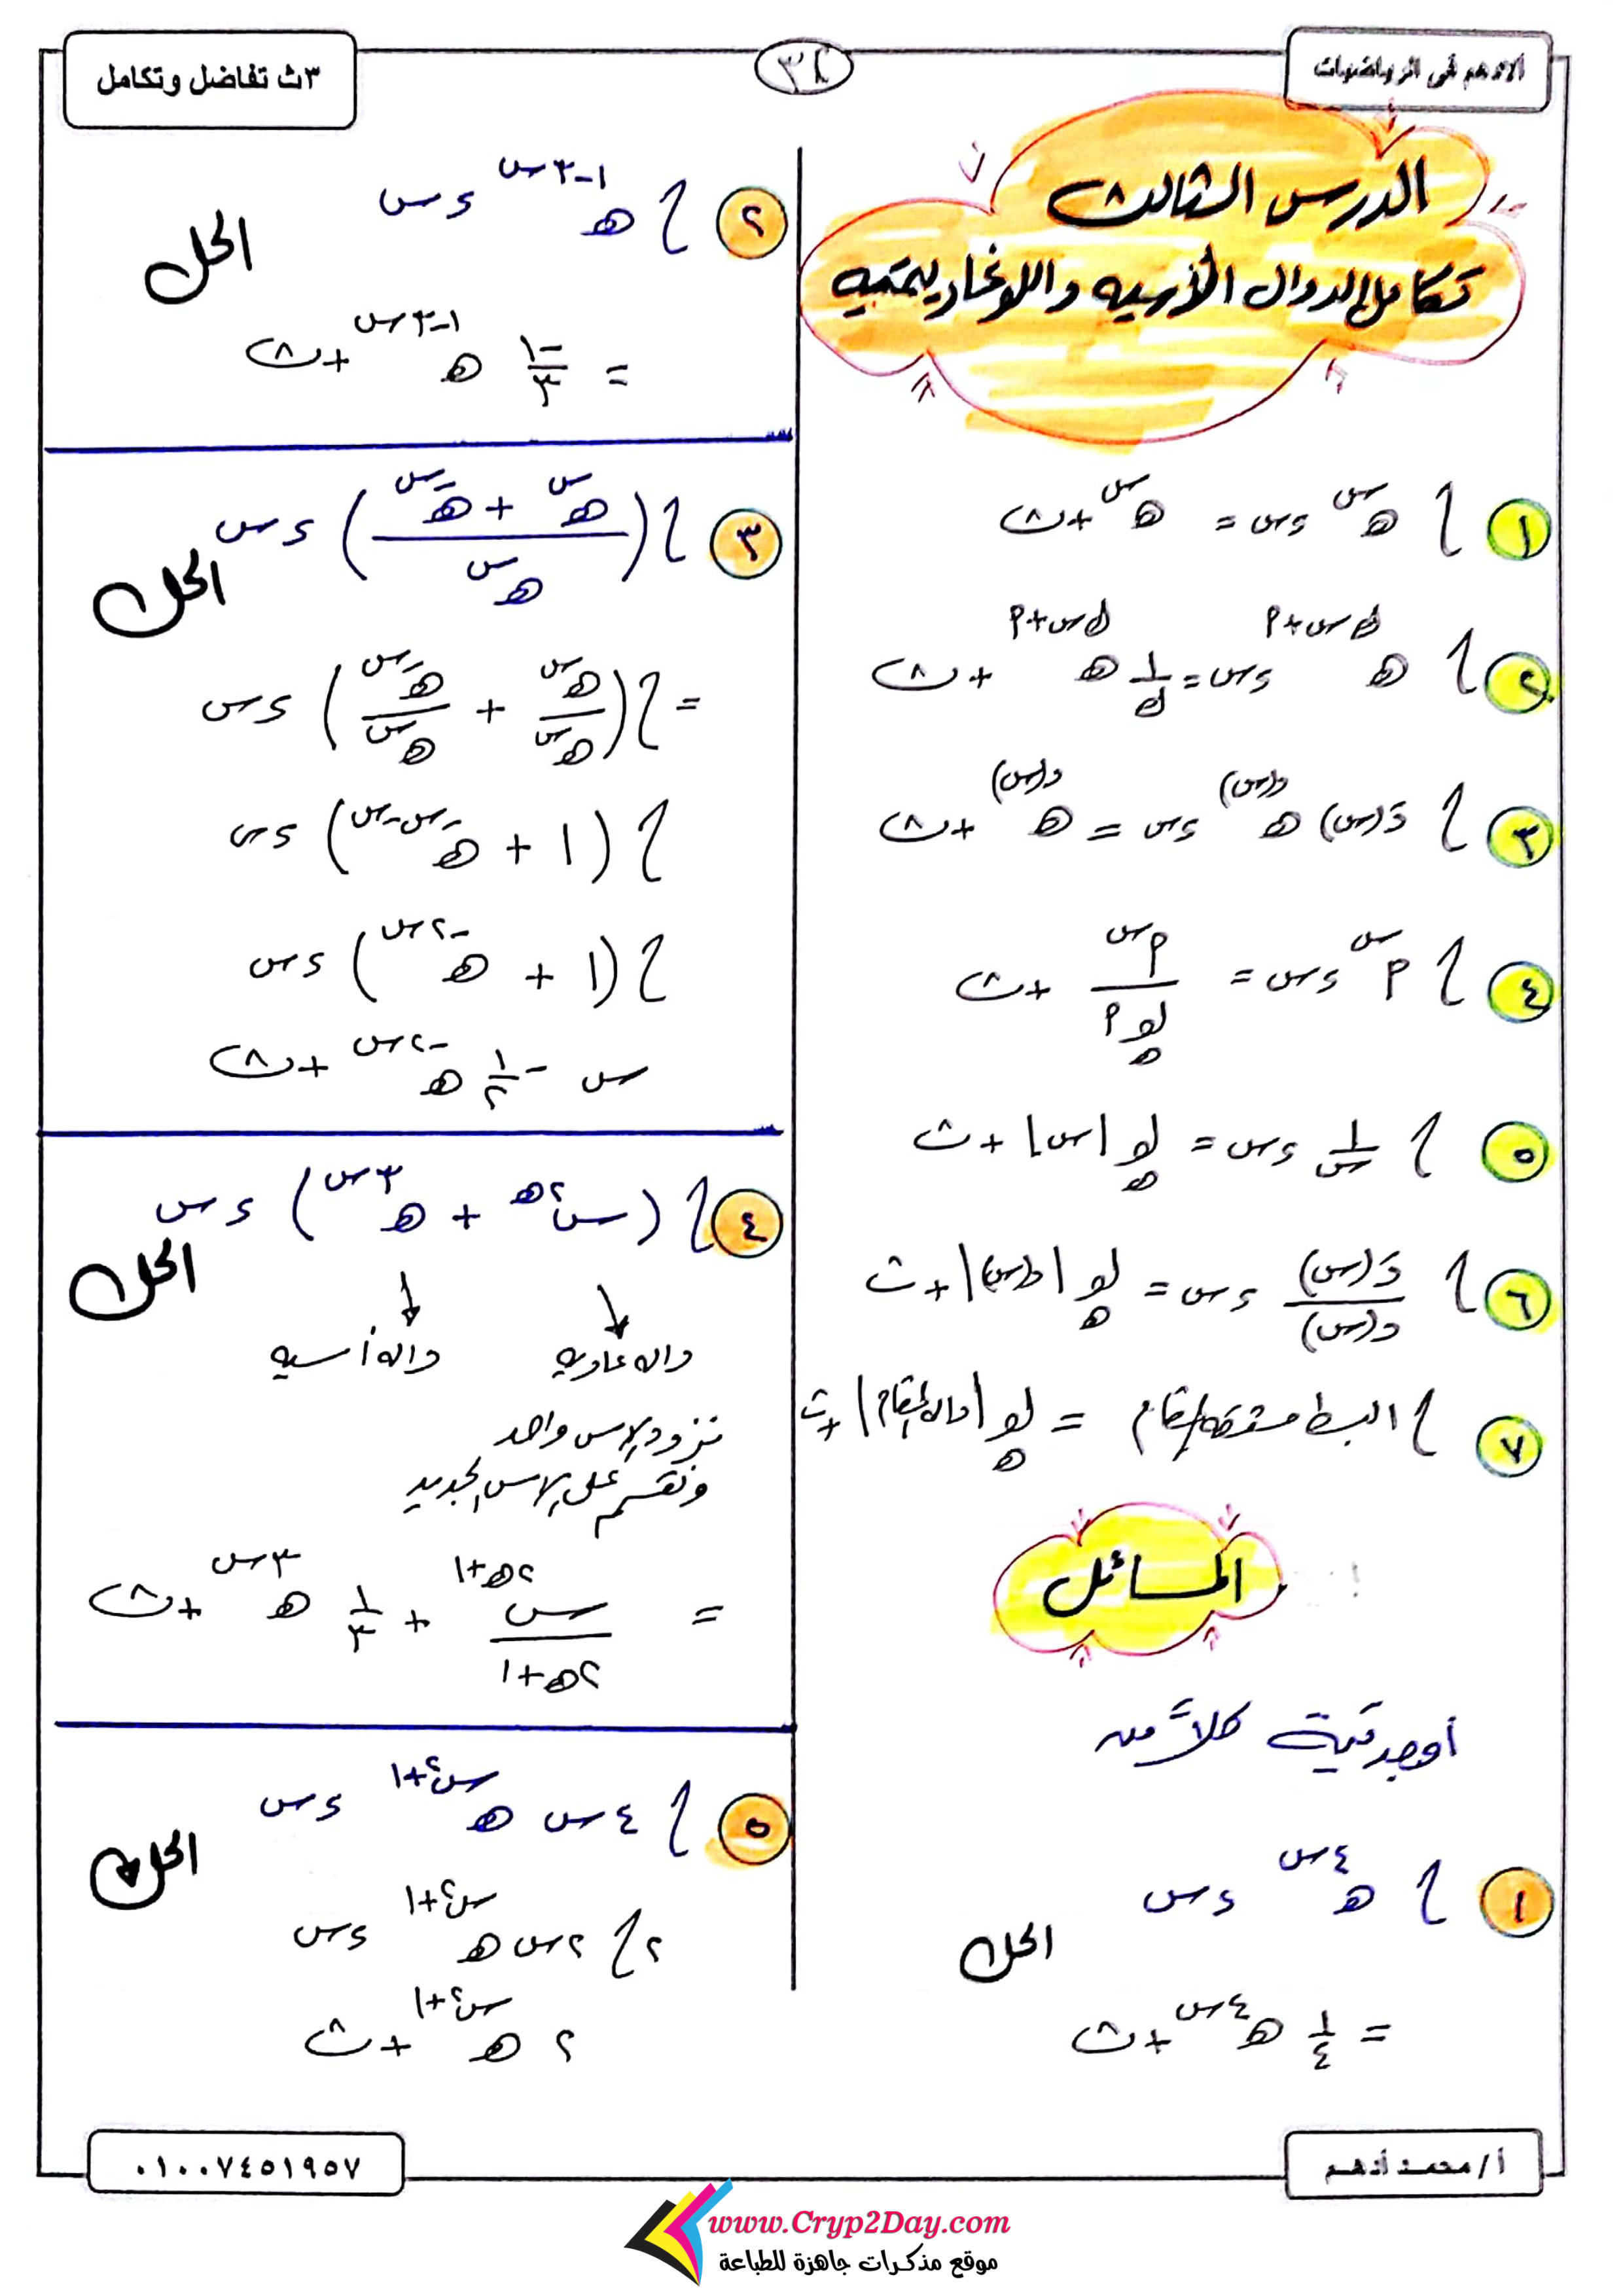 الادهم فى الرياضيات
٣٨
٣ث تفاضل وتكامل
الدرس الثالث
تكامل الدوال الأسيه واللوغاريتميه
١ ∫ هـ^س ءس = هـ^س + ث
٢ ∫ هـ^(ك س + P) ءس = ١/ك هـ^(ك س + P) + ث
٣ ∫ دَ(س) هـ^د(س) ءس = هـ^د(س) + ث
٤ ∫ P^س ءس = P^س / لو_هـ P + ث
٥ ∫ ١/س ءس = لو_هـ |س| + ث
٦ ∫ دَ(س)/د(س) ءس = لو_هـ |د(س)| + ث
٧ ∫ البسط مشتقه المقام = لو_هـ |داله المقام| + ث
المسائل
أوجد قيمة كلاً من
١ ∫ هـ^٤س ءس
الحل
= ١/٤ هـ^٤س + ث
٢ ∫ هـ^(١-٣س) ءس
الحل
= -١/٣ هـ^(١-٣س) + ث
٣ ∫ ((هـ^س + هـ^-س) / هـ^س) ءس
الحل
= ∫ (هـ^س/هـ^س + هـ^-س/هـ^س) ءس
∫ (١ + هـ^(-س-س)) ءس
∫ (١ + هـ^-٢س) ءس
س - ١/٢ هـ^-٢س + ث
٤ ∫ (س^٢هـ + هـ^٣س) ءس
الحل
داله عاديه داله أسيه
نزود الاس واحد
ونقسم على الاس الجديد
= س^(٢هـ+١) / (٢هـ+١) + ١/٣ هـ^٣س + ث
٥ ∫ ٤س هـ^(س^٢+١) ءس
الحل
٢ ∫ ٢س هـ^(س^٢+١) ءس
٢ هـ^(س^٢+١) + ث
أ/ محمد أدهم
٠١٠٠٧٤٥١٩٥٧
www.Cryp2Day.com
موقع مذكرات جاهزة للطباعة